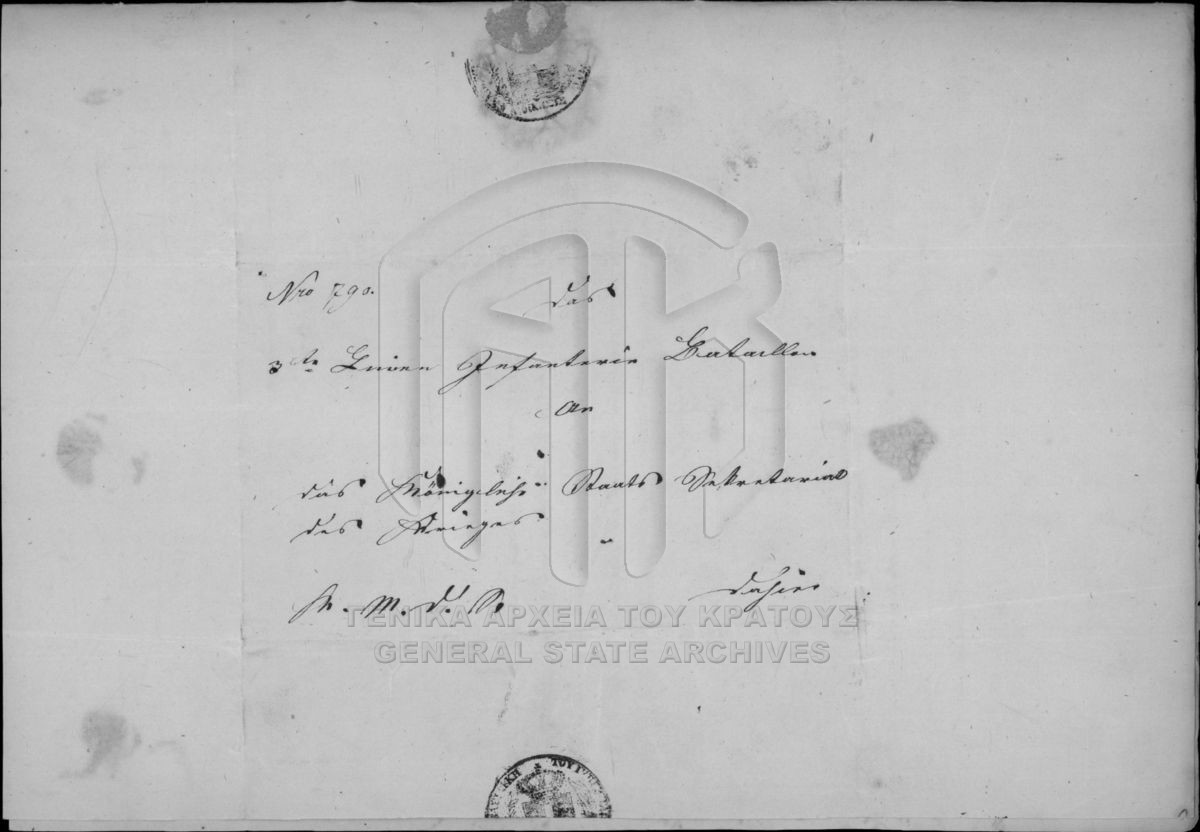 Nro 790.
Das
3te Linien Infanterie Bataillon
An
das Königliche Staats Sekretariat
des Krieges
K. M. D. S.
Dahier
ΓΕΝΙΚΑ ΑΡΧΕΙΑ ΤΟΥ ΚΡΑΤΟΥΣ
GENERAL STATE ARCHIVES
ΤΟΥ